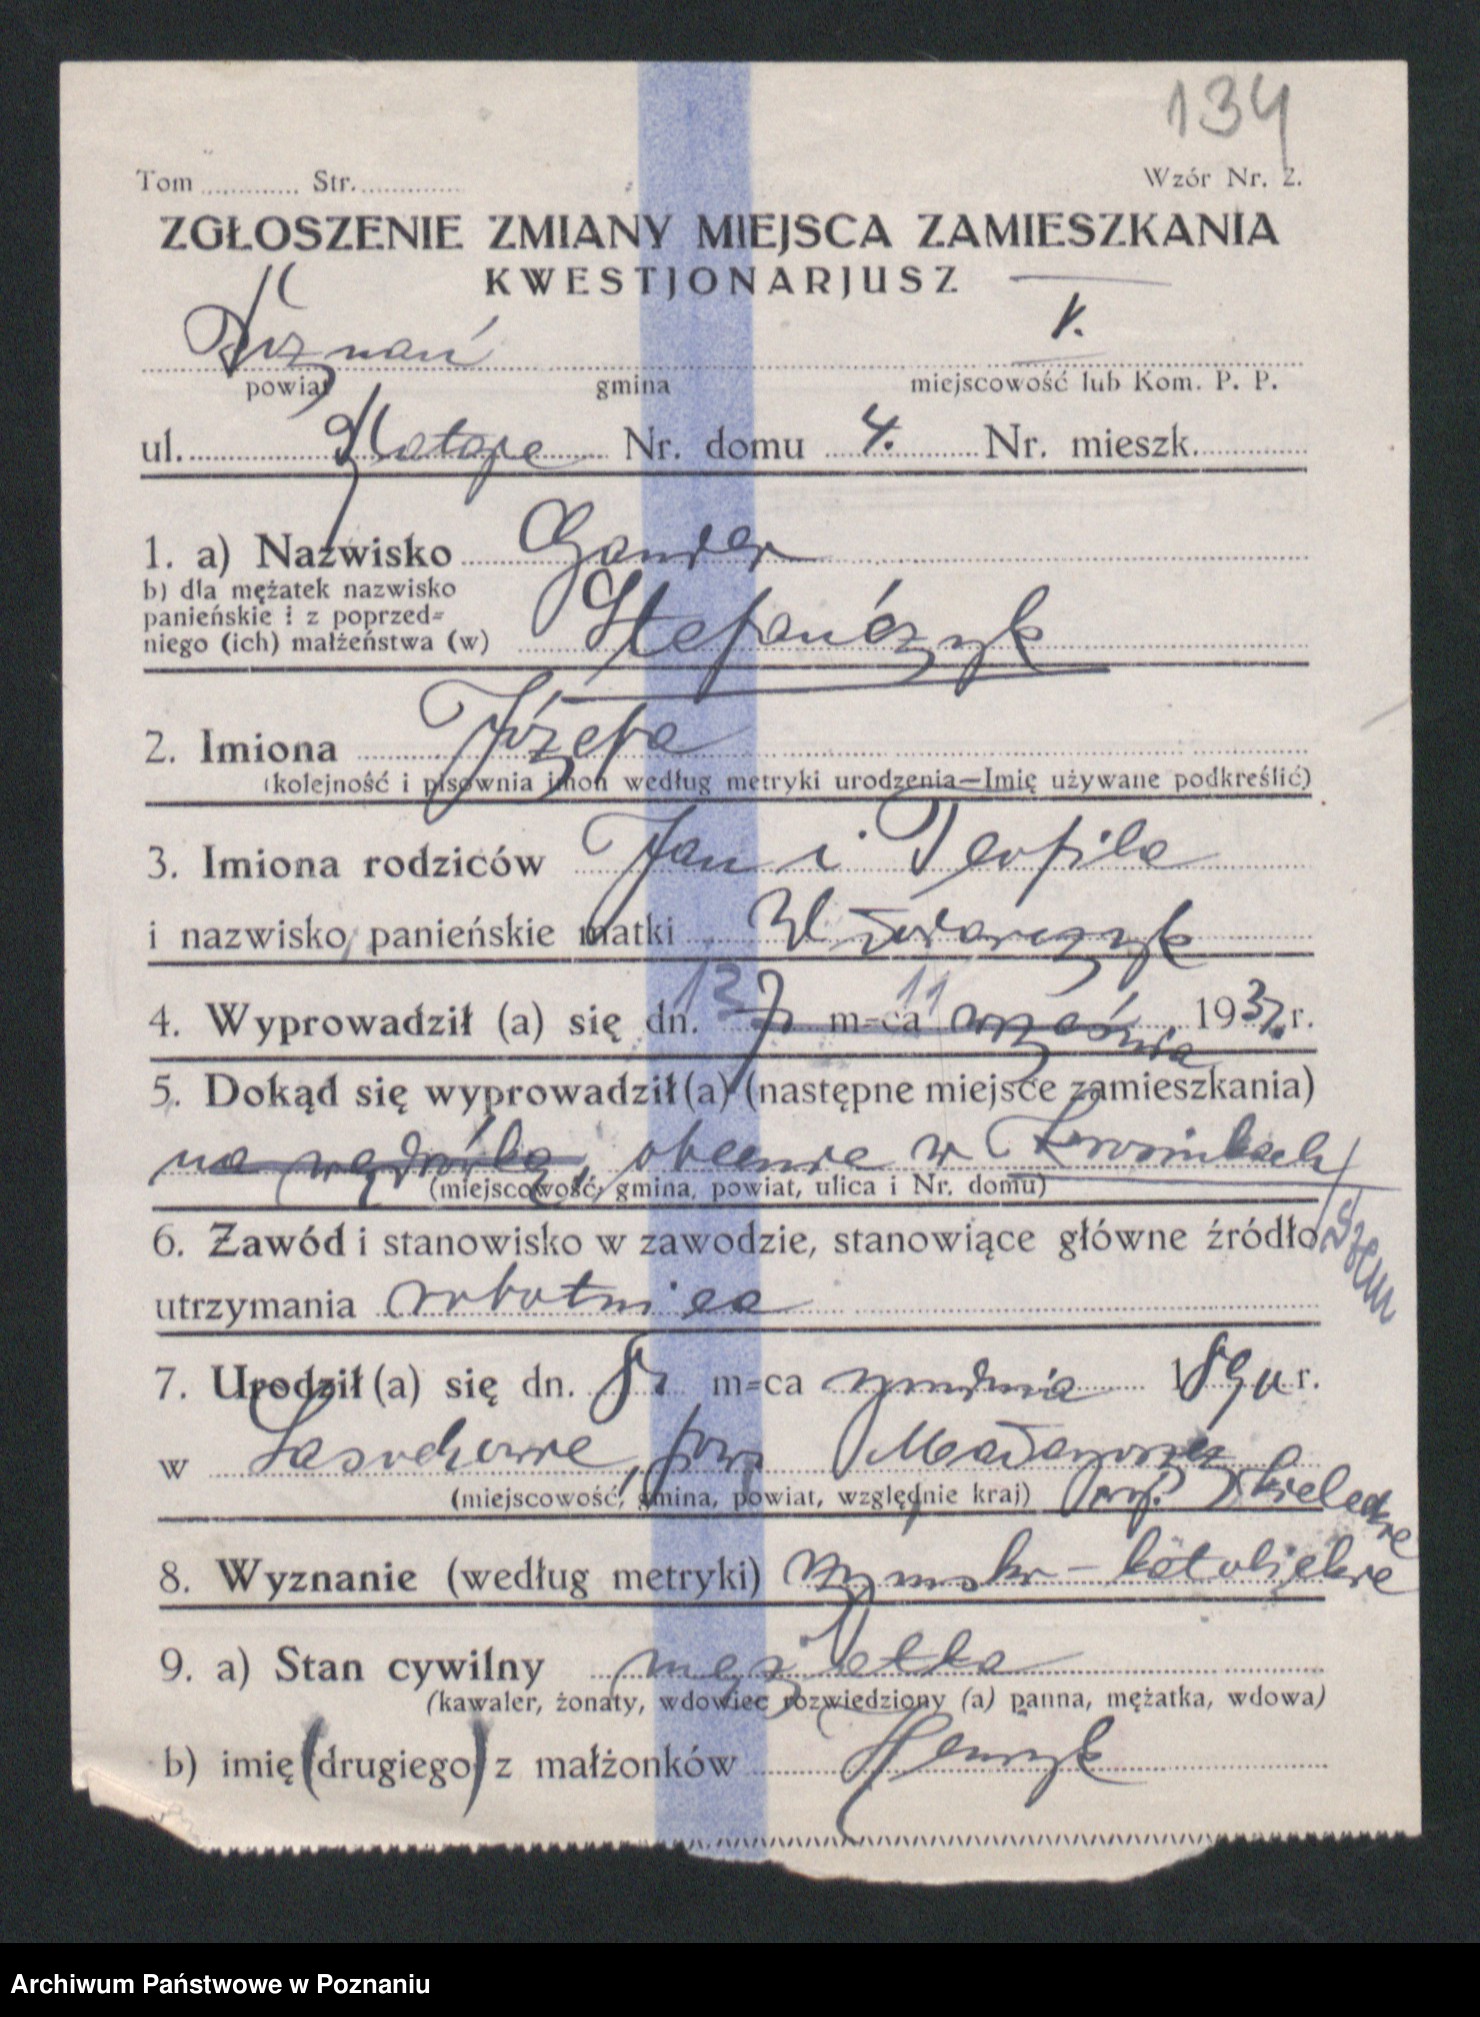 134
Tom ............ Str. ............. Wzór Nr. 2.
ZGŁOSZENIE ZMIANY MIEJSCA ZAMIESZKANIA
KWESTJONARJUSZ
Poznań V.
powiat gmina miejscowość lub Kom. P. P.
ul. Nr. domu 4. Nr. mieszk.
1. a) Nazwisko Gander
b) dla mężatek nazwisko
panieńskie i z poprzed=
niego (ich) małżeństwa (w) Stefańczyk
2. Imiona Józefa
(kolejność i pisownia imon według metryki urodzenia—Imię używane podkreślić)
3. Imiona rodziców Jan i Teofila
i nazwisko panieńskie matki Włodarczyk
4. Wyprowadził (a) się dn. 13 7 m=ca 11 września 1937. r.
5. Dokąd się wyprowadził (a) (następne miejsce zamieszkania)
na wędrówkę, obecnie w Krosinkach
(miejscowość, gmina, powiat, ulica i Nr. domu)
6. Zawód i stanowisko w zawodzie, stanowiące główne źródło
utrzymania robotnica
7. Urodził (a) się dn. 8. m=ca grudnia 1890 r.
w Lasochowie, pow.
(miejscowość, gmina, powiat, względnie kraj) woj. Kieleckie
8. Wyznanie (według metryki) rzymsko-katolickie
9. a) Stan cywilny mężatka
(kawaler, żonaty, wdowiec rozwiedziony (a) panna, mężatka, wdowa)
b) imię (drugiego) z małżonków Henryk
Archiwum Państwowe w Poznaniu